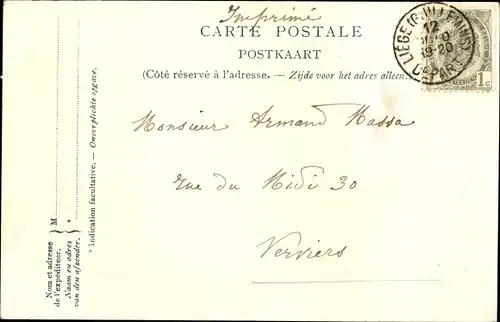 Imprimé
CARTE POSTALE
POSTKAART
(Côté réservé à l'adresse. — Zijde voor het adres alleen.
LIÈGE (GUILLEMINS)
12
19-20
DÉPART
1c
Monsieur Armand Massa
rue du Midi 30
Verviers
Nom et adresse
de l'expéditeur.
Naam en adres
van den afzender.
M
*
* Indication facultative. — Onverplichte opgave.